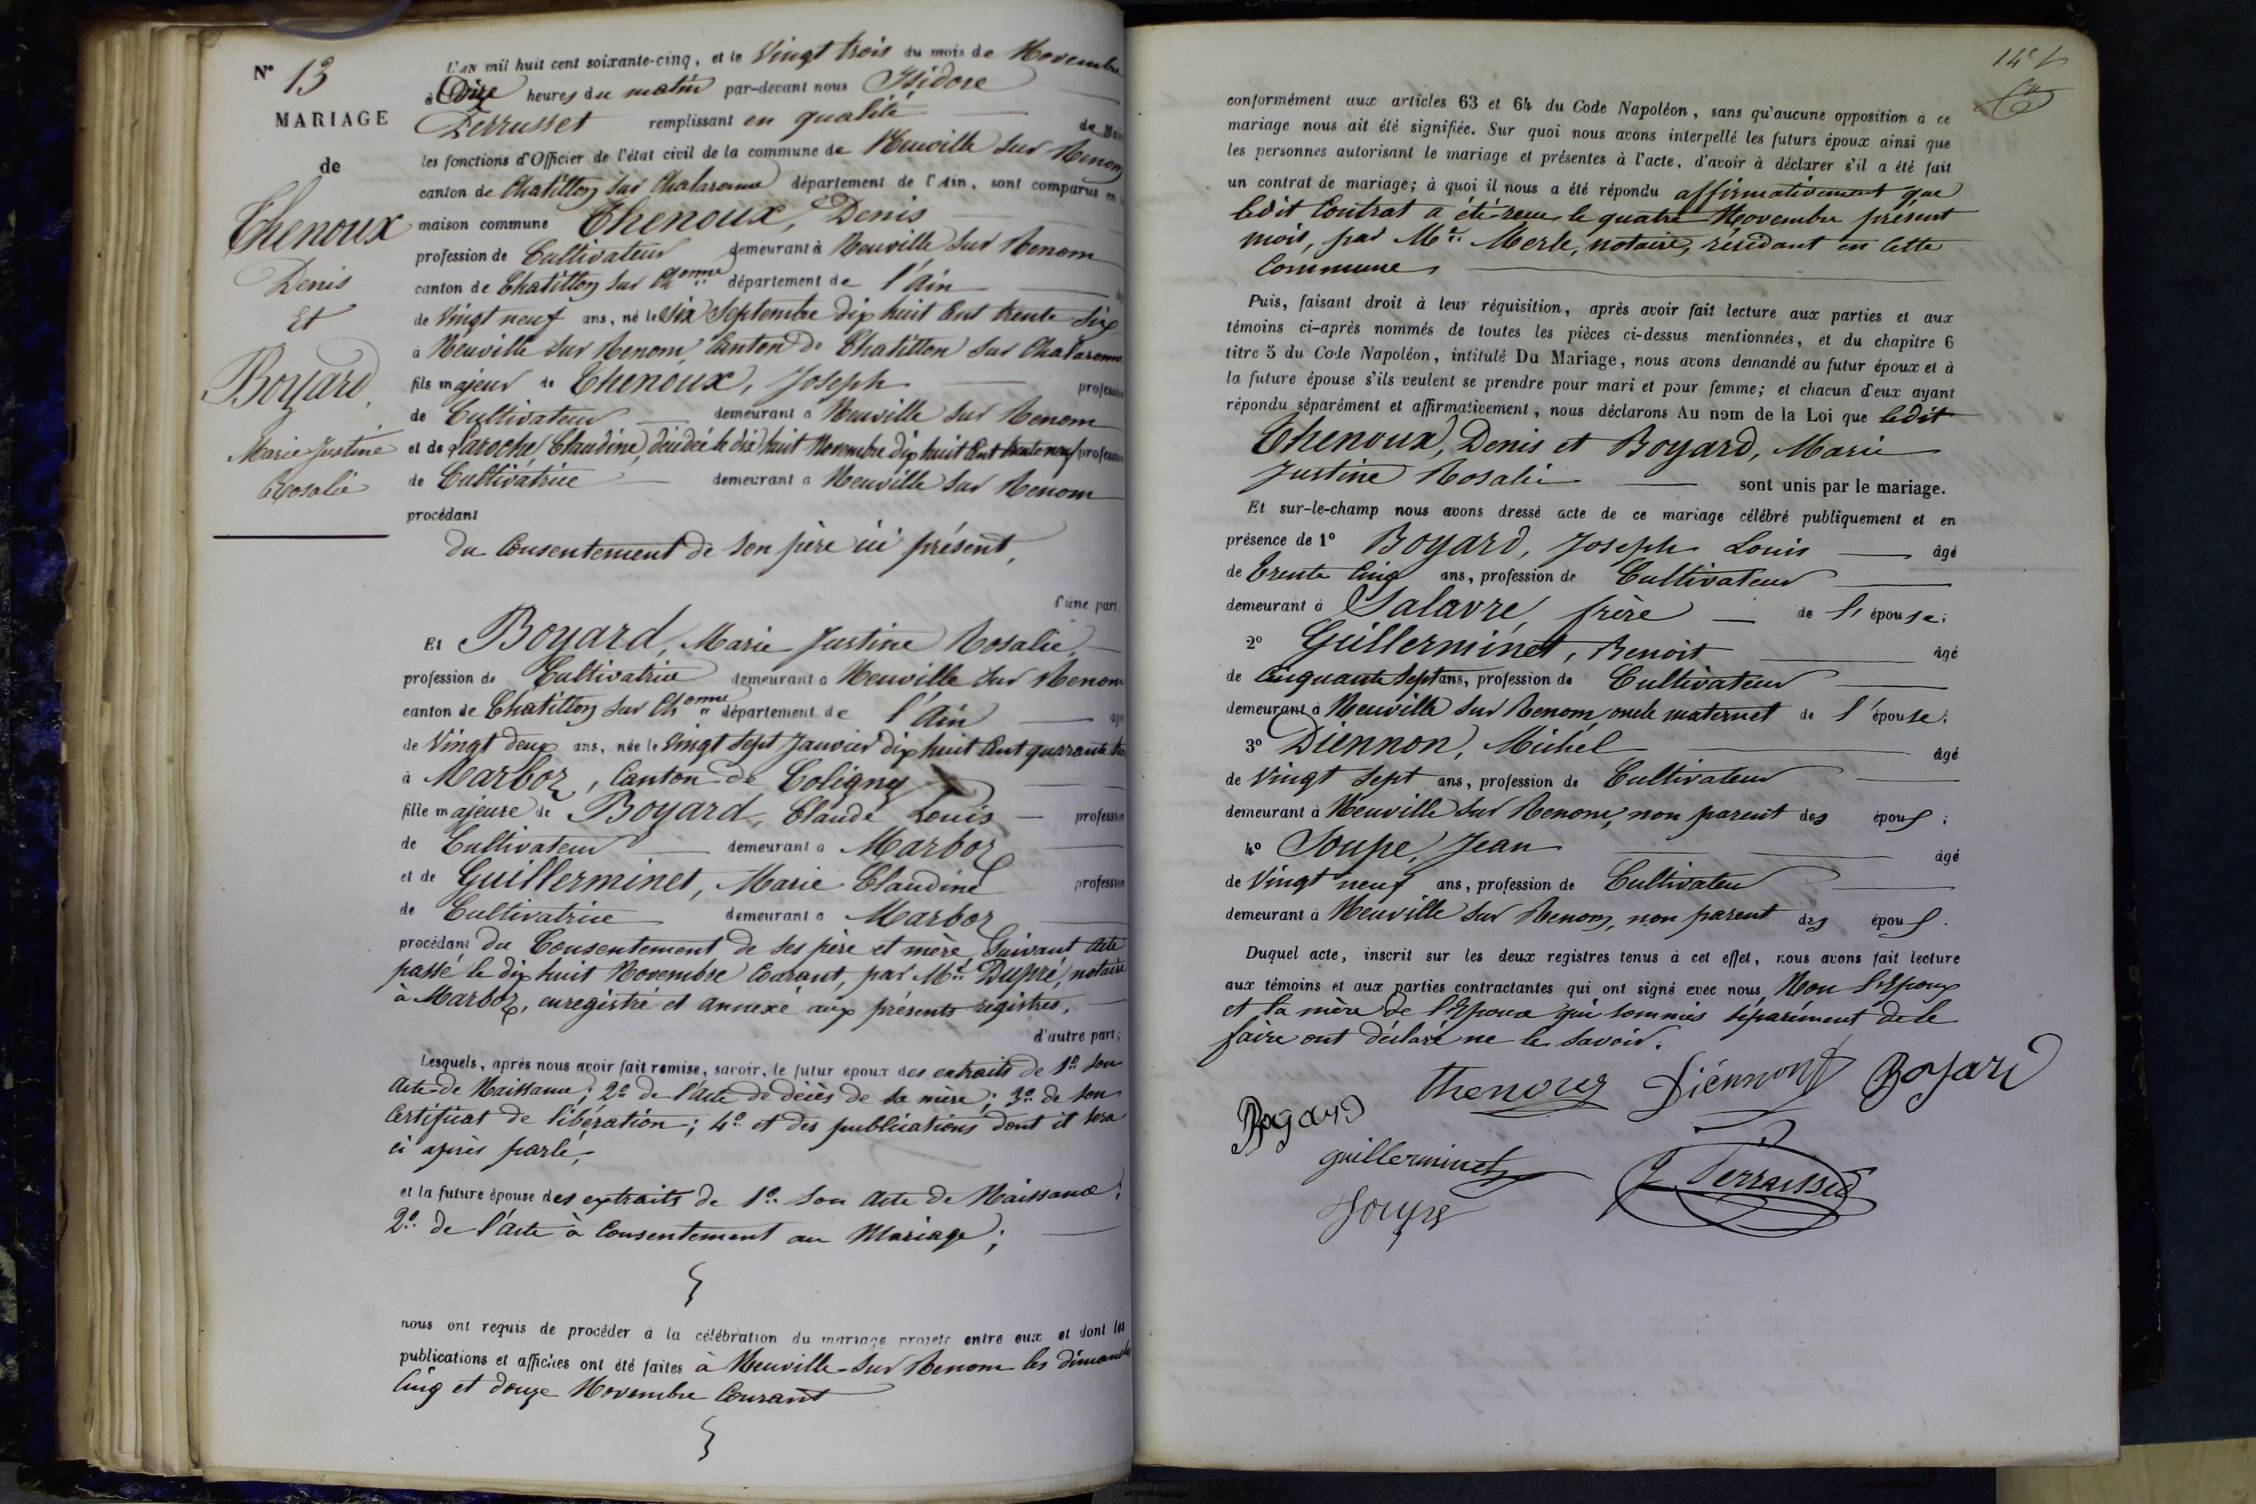 N° 13
MARIAGE
de
Thenoux
Denis
Et
Boyard,
Marie Justine
Rosalie
L'AN mil huit cent soixante-cinq, et le Vingt trois du mois de Novembre
à heures du matin par-devant nous Isidore
Terrasset remplissant en qualité de Maire
les fonctions d'Officier de l'état civil de la commune de Neuville sur Renom
canton de Chatillon sur Chalaronne département de l'Ain, sont comparus en la
maison commune Thenoux, Denis
profession de Cultivateur demeurant à Neuville sur Renom
canton de Chatillon sur Chonne département de l'Ain
de Vingt neuf ans, né le Six Septembre dix huit Cent trente Six
à Neuville sur Renom, Canton de Chatillon sur Chalaronne
fils majeur de Thenoux, Joseph profession
de Cultivateur demeurant à Neuville sur Renom
et de Laroche, Claudine, décédée le dix huit Novembre dix huit Cent profession
de Cultivatrice demeurant à Neuville sur Renom
procédant
du Consentement de son père ici présent,
d'une part,
Et Boyard, Marie Justine Rosalie,
profession de Cultivatrice demeurant à Neuville sur Renom
canton de Chatillon sur Chonne département de l'Ain agée
de Vingt deux ans, née le Vingt Sept Janvier dix huit Cent quarante trois
à Marboz, Canton de Coligny
fille majeure de Boyard, Claude Louis profession
de Cultivateur demeurant à Marboz
et de Guillerminet, Marie Claudine profession
de Cultivatrice demeurant à Marboz
procédant du Consentement de ses père et mère, Suivant Acte
passé le dix huit Novembre Courant, par Me Dupré, notaire
à Marboz, enregistré et annexé aux présents registres,
d'autre part;
Lesquels, après nous avoir fait remise, savoir, le futur époux des extraits de 1° Son
Acte de Naissance; 2° de l'Acte de décès de sa mère; 3° de son
Certificat de libération; 4° et des publications dont il sera
ci après parlé;
et la future épouse des extraits de 1° Son Acte de Naissance;
2° de l'Acte à Consentement au Mariage;
nous ont requis de procéder à la célébration du mariage projeté entre eux et dont les
publications et affiches ont été faites à Neuville-sur Renom les dimanches
Cinq et douze Novembre Courant
14e
conformément aux articles 63 et 64 du Code Napoléon, sans qu'aucune opposition à ce
mariage nous ait été signifiée. Sur quoi nous avons interpellé les futurs époux ainsi que
les personnes autorisant le mariage et présentes à l'acte, d'avoir à déclarer s'il a été fait
un contrat de mariage; à quoi il nous a été répondu affirmativement que
ledit Contrat a été reçu le quatre Novembre présent
mois, par Me Merle, notaire, résidant en Cette
Commune,
Puis, faisant droit à leur réquisition, après avoir fait lecture aux parties et aux
témoins ci-après nommés de toutes les pièces ci-dessus mentionnées, et du chapitre 6
titre 5 du Code Napoléon, intitulé Du Mariage, nous avons demandé au futur époux et à
la future épouse s'ils veulent se prendre pour mari et pour femme; et chacun d'eux ayant
répondu séparément et affirmativement, nous déclarons Au nom de la Loi que ledit
Thenoux, Denis et Boyard, Marie
Justine Rosalie sont unis par le mariage.
Et sur-le-champ nous avons dressé acte de ce mariage célébré publiquement et en
présence de 1° Boyard, Joseph Louis âgé
de trente Cinq ans, profession de Cultivateur
demeurant à Salavre, frère de l'épouse;
2° Guillerminet, Benoit âgé
de Cinquante Sept ans, profession de Cultivateur
demeurant à Neuville sur Renom, oncle maternel de l'épouse;
3° Diennon, Michel âgé
de Vingt Sept ans, profession de Cultivateur
demeurant à Neuville sur Renom, non parent des époux;
4° Soupe, Jean âgé
de Vingt neuf ans, profession de Cultivateur
demeurant à Neuville sur Renom, non parent des époux.
Duquel acte, inscrit sur les deux registres tenus à cet effet, nous avons fait lecture
aux témoins et aux parties contractantes qui ont signé avec nous, Non
et la mère de l'Epoux qui sommés séparément de le
faire ont déclaré ne le savoir.
Thenoux Diennon Boyard
Boyard
guillerminet
J Terrasset
Soupe